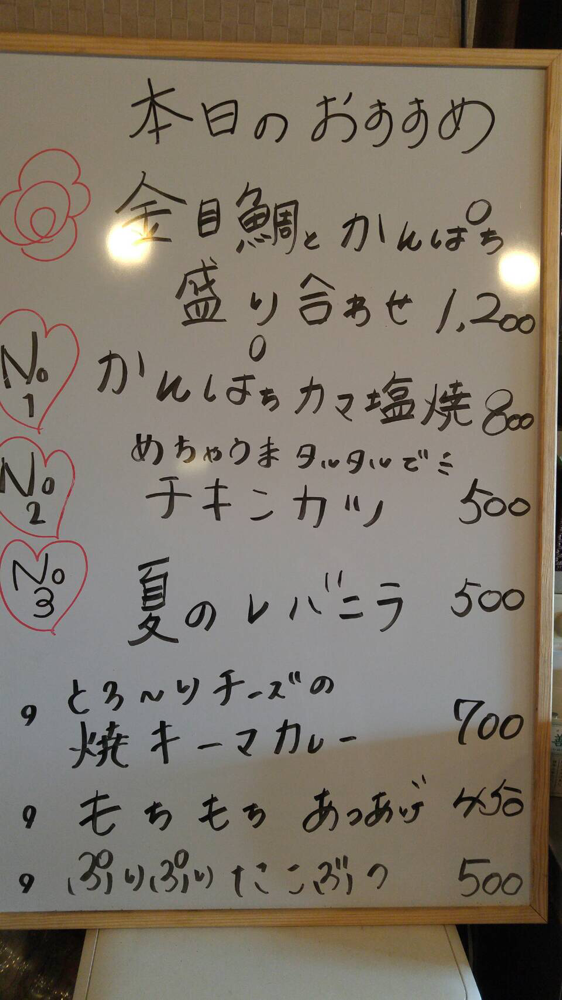 本日のおすすめ
金目鯛とかんぱち
盛り合わせ 1,200
No1 かんぱちカマ塩焼 800
めちゃうまタルタルで
No2 チキンカツ 500
No3 夏のレバニラ 500
とろ〜りチーズの
焼キーマカレー 700
もちもち あつあげ 450
ぷりぷり たこぶつ 500